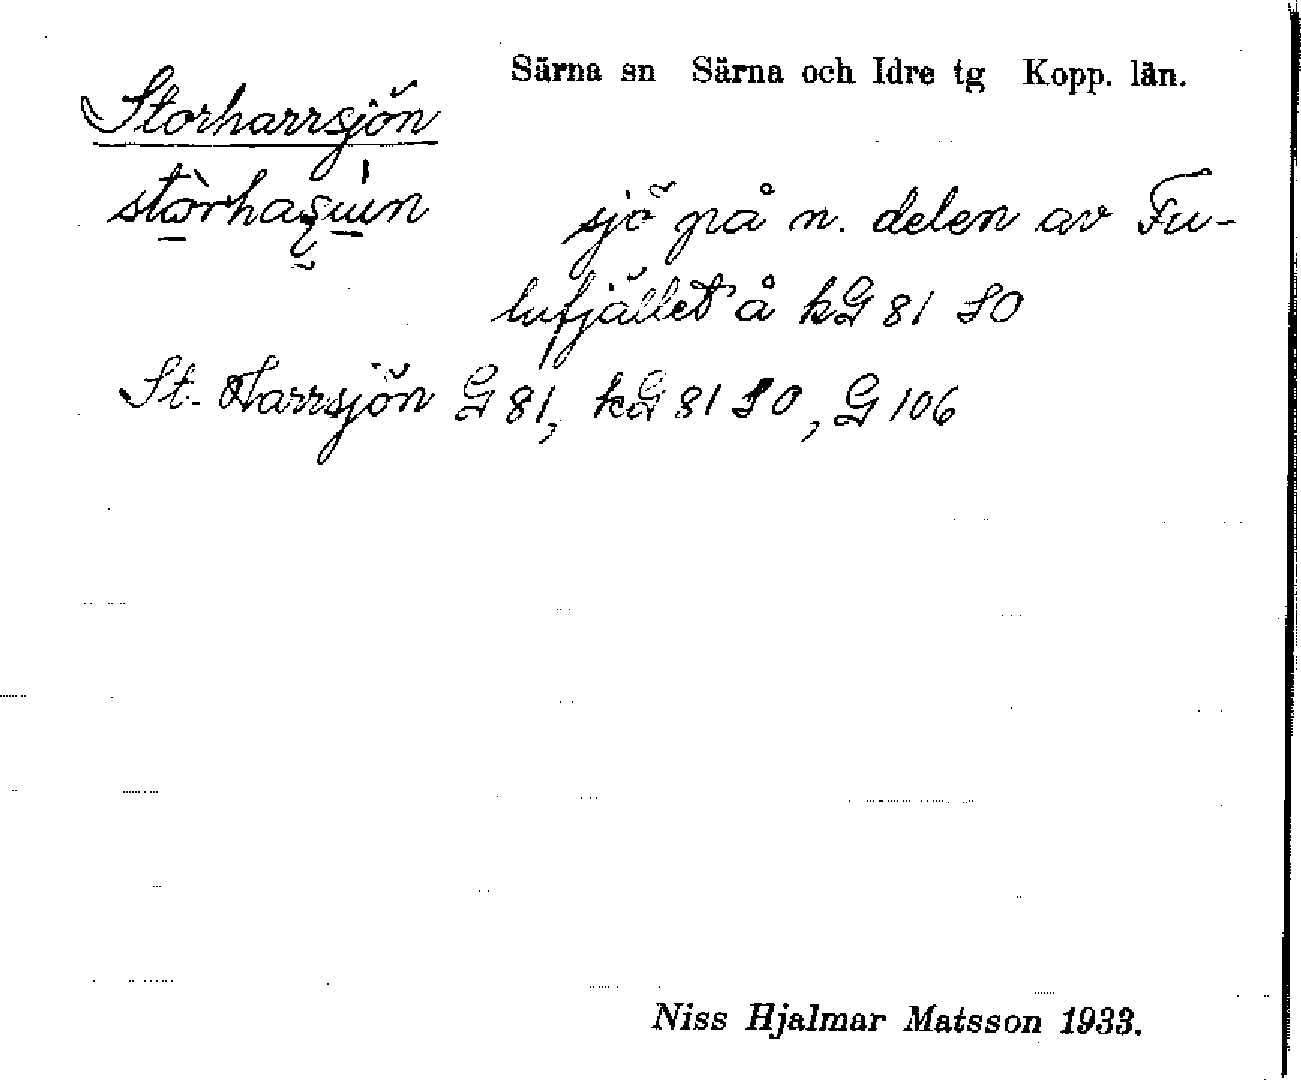 Särna sn Särna och Idre tg Kopp. län.
Storharrsjön
sjö på n. delen av Fu-
lufjället å kG 81 SO
St. Harrsjön G 81, kG 81 SO, G 106
Niss Hjalmar Matsson 1933.